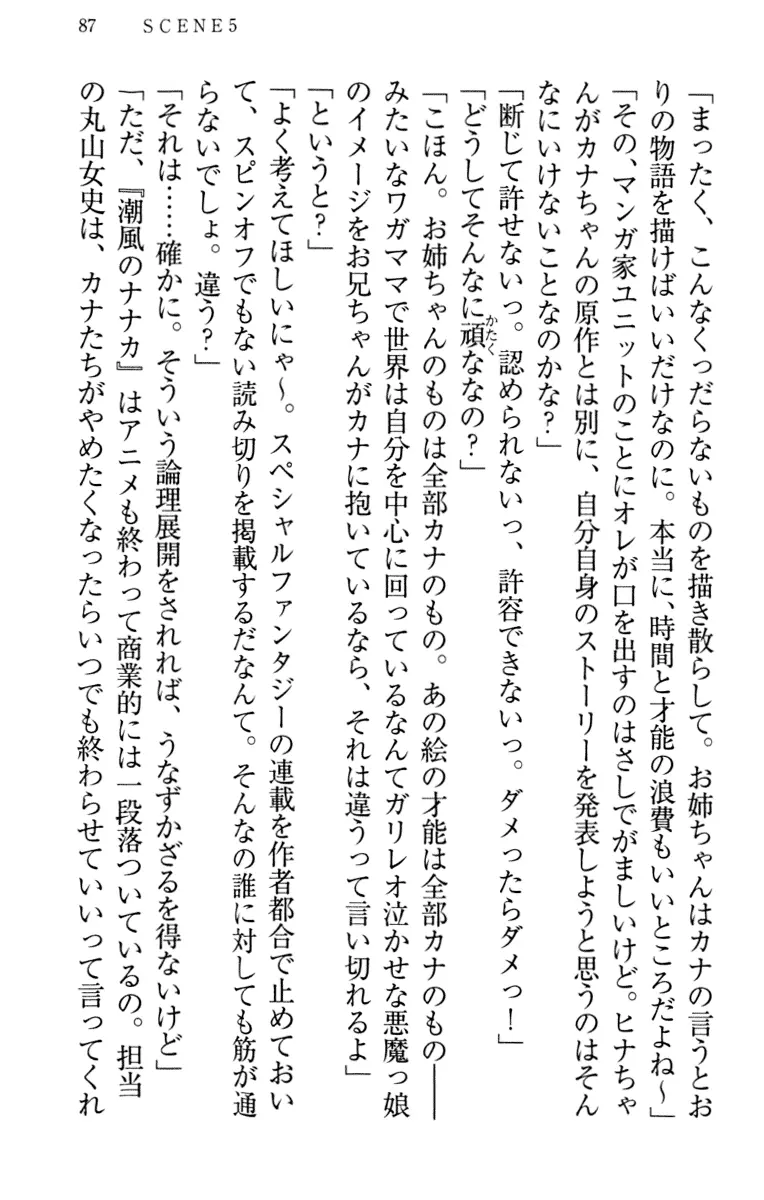 87　SCENE5
「まったく、こんなくっだらないものを描き散らして。お姉ちゃんはカナの言うとお
りの物語を描けばいいだけなのに。本当に、時間と才能の浪費もいいところだよね〜」
「その、マンガ家ユニットのことにオレが口を出すのはさしでがましいけど。ヒナちゃ
んがカナちゃんの原作とは別に、自分自身のストーリーを発表しようと思うのはそん
なにいけないことなのかな？」
「断じて許せないっ。認められないっ、許容できないっ。ダメったらダメっ！」
「どうしてそんなに頑（かたく）ななの？」
「こほん。お姉ちゃんのものは全部カナのもの。あの絵の才能は全部カナのもの――
みたいなワガママで世界は自分を中心に回っているなんてガリレオ泣かせな悪魔っ娘
のイメージをお兄ちゃんがカナに抱いているなら、それは違うって言い切れるよ」
「というと？」
「よく考えてほしいにゃ〜。スペシャルファンタジーの連載を作者都合で止めておい
て、スピンオフでもない読み切りを掲載するだなんて。そんなの誰に対しても筋が通
らないでしょ。違う？」
「それは……確かに。そういう論理展開をされれば、うなずかざるを得ないけど」
「ただ、『潮風のナナカ』はアニメも終わって商業的には一段落ついているの。担当
の丸山女史は、カナたちがやめたくなったらいつでも終わらせていいって言ってくれ